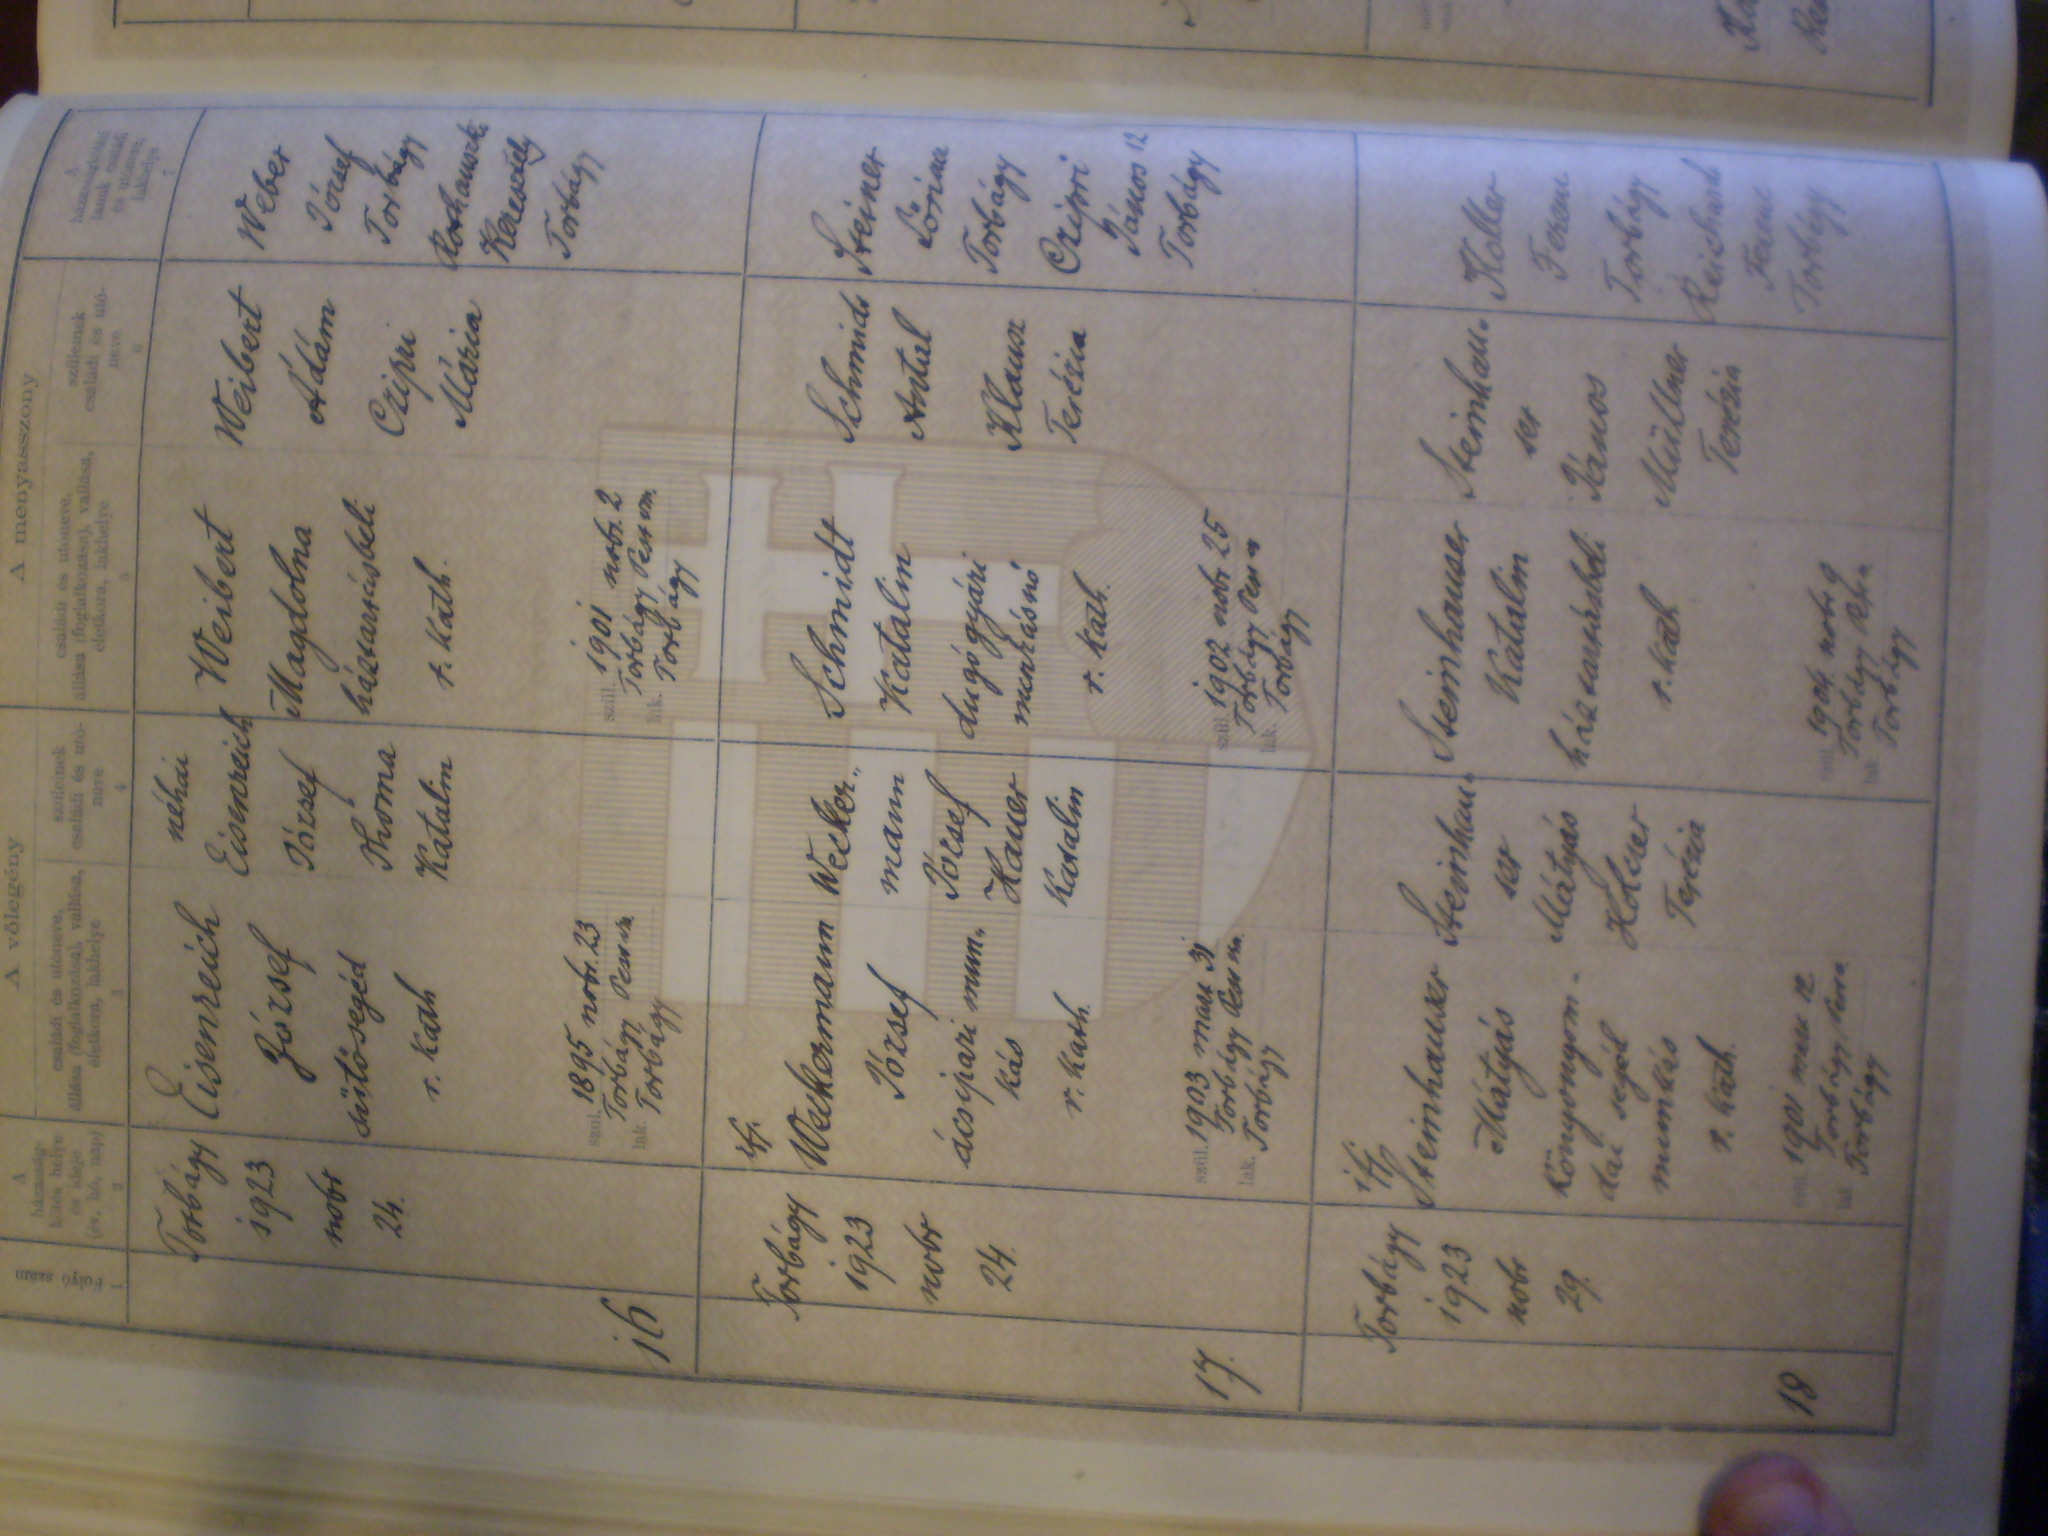 A vőlegény
A menyasszony
Folyó szám
A házasság-
kötés helye
és ideje
(év, hó, nap)
családi és utóneve,
állása (foglalkozása), vallása,
életkora, lakhelye
szüleinek
családi és utó-
neve
családi és utóneve,
állása (foglalkozása), vallása,
életkora, lakhelye
szüleinek
családi és utó-
neve
A
házasságkötési
tanuk családi
és utóneve,
lakhelye
1
2
3
4
5
6
7
16
Torbágy
1923
nobr
24.
Eisenreich
József
sütősegéd
r. kath
szül. 1895 nobr. 23
Torbágy Pest vm.
lak. Torbágy
néhai
Eisenreich
József
Thoma
Katalin
Weibert
Magdolna
háztartásbeli
r. kath.
szül. 1901 nobr. 2
Torbágy Pest vm.
lak. Torbágy
Weibert
Ádám
Czipri
Mária
Weber
József
Torbágy
Torbágy
17.
Torbágy
1923
nobr
24.
ifj.
Weckermann
József
ácsipari mun-
kás
r. kath.
szül. 1903 mars 31
Torbágy Pest vm.
lak. Torbágy
Wecker-
mann
József
Hauer
Katalin
Schmidt
Katalin
dugógyári
munkásnő
r. kath.
szül. 1902 nobr. 25
Torbágy Pest vm
lak. Torbágy
Schmidt
Antal
Klausz
Terézia
Steiner
Torbágy
Czipri
János
Torbágy
18
Torbágy
1923
nobr
29.
ifj
Steinhauser
Mátyás
Könyvnyom-
dai segéd
munkás
r. kath.
szül. 1901 mars 12.
Torbágy
lak. Torbágy
Steinhau-
ser
Mátyás
Holczer
Terézia
Steinhauser
Katalin
háztartásbeli
r. kath
szül. 1904. nobr. 9
Torbágy
lak. Torbágy
Steinhau-
ser
János
Müllner
Terézia
Koller
Ferenc
Torbágy
Ferenc
Torbágy